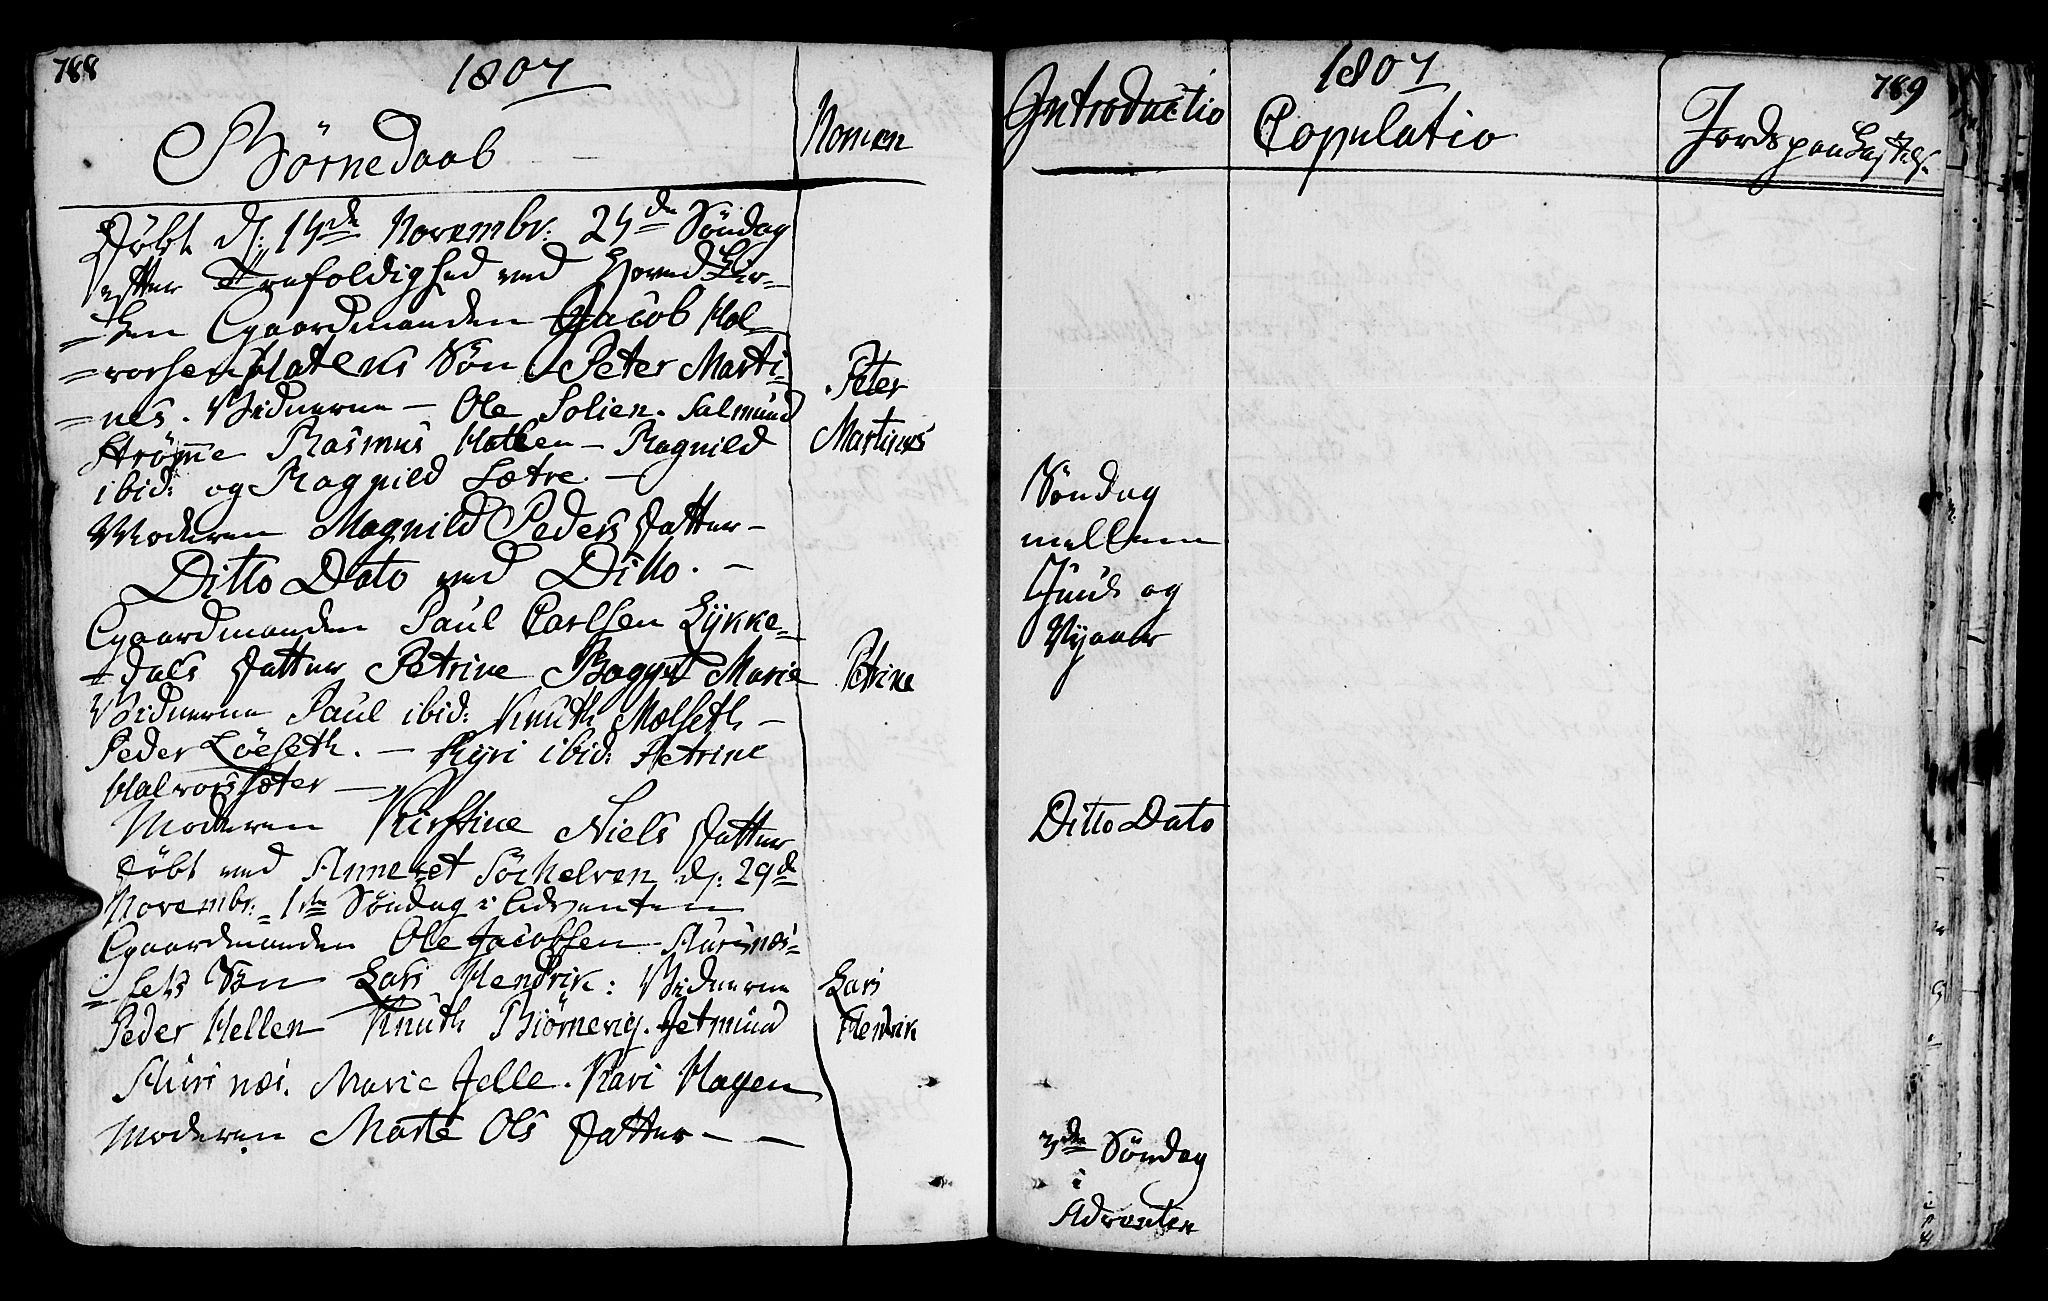 788
1807
Børnedaab
Nomen
Døbt d: 15de Novembr: 25de Søndag
efter Trefoldighed ved Hoved Kir=
=ken Gaardmanden Jacob Hal=
=vorsen Slatems Søn Peter Marti=
=nes. Vidnerne - Ole Solien. Salmund
Strømme Rasmus Hatlen - Ragnild
ibid: og Ragnild Sætre. -
Moderen Magnild Peders Datter -
Peter
Martines
Ditto Dato ved Ditto. -
Gaardmanden Paul Carlsen Lykke=
=dals Datter Petrine Bagget Marie
Vidnerne Paul ibid: Knuth Mælseth -
Peder Løeseth. - Kyri ibid: Petrine
Halvorssæter -
Moderen Kirstine Niels Datter
Petrine
Døbt ved Annexet Søchelven d: 29de
Novembr: 1ste Søndag i Adventen
Gaardmanden Ole Jacobsen Aurenæs=
=sets Søn Lars Hendrik: Vidnerne
Peder Hellen Knuth Biørnevig. Jetmund
Aurenæs. Marie Jelle. Kari Hagen
Moderen Marte Ols Datter - -
Lars
Hendrik
1807
789
Introductio
Copulatio
Jordspaakastels.
Søndag
mellem
Juul og
Nyaar
Ditto Dato
3de Søndag
i
Adventen